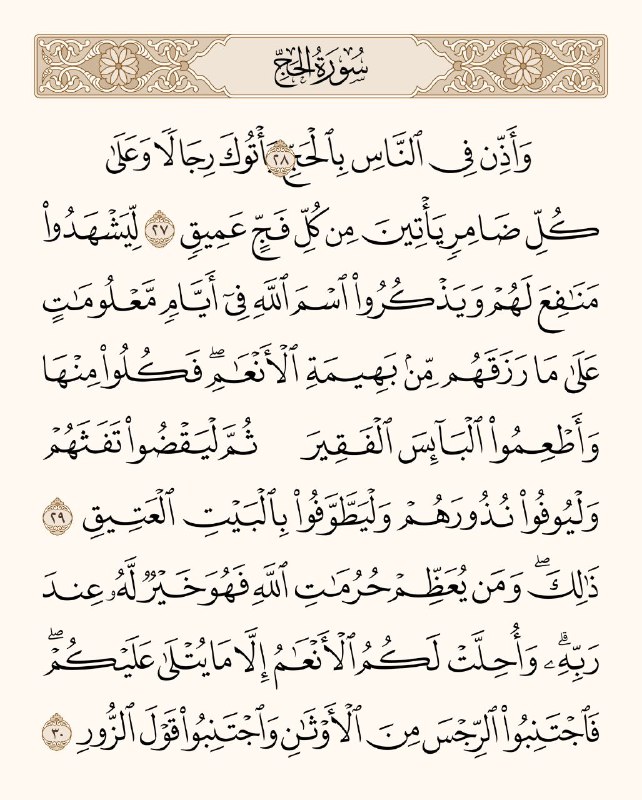 سُورَةُ الحَجِّ
وَأَذِّن فِى ٱلنَّاسِ بِٱلْحَجِّ ٢٨ َأْتُوكَ رِجَالًا وَعَلَىٰ
كُلِّ ضَامِرٍ يَأْتِينَ مِن كُلِّ فَجٍّ عَمِيقٍ ٢٧ لِّيَشْهَدُوا۟
مَنَـٰفِعَ لَهُمْ وَيَذْكُرُوا۟ ٱسْمَ ٱللَّهِ فِىٓ أَيَّامٍ مَّعْلُومَـٰتٍ
عَلَىٰ مَا رَزَقَهُم مِّنۢ بَهِيمَةِ ٱلْأَنْعَـٰمِ ۖ فَكُلُوا۟ مِنْهَا
وَأَطْعِمُوا۟ ٱلْبَآئِسَ ٱلْفَقِيرَ ثُمَّ لْيَقْضُوا۟ تَفَثَهُمْ
وَلْيُوفُوا۟ نُذُورَهُمْ وَلْيَطَّوَّفُوا۟ بِٱلْبَيْتِ ٱلْعَتِيقِ ٢٩
ذَٰلِكَ ۖ وَمَن يُعَظِّمْ حُرُمَـٰتِ ٱللَّهِ فَهُوَ خَيْرٌ لَّهُۥ عِندَ
رَبِّهِۦ ۗ وَأُحِلَّتْ لَكُمُ ٱلْأَنْعَـٰمُ إِلَّا مَا يُتْلَىٰ عَلَيْكُمْ ۖ
فَٱجْتَنِبُوا۟ ٱلرِّجْسَ مِنَ ٱلْأَوْثَـٰنِ وَٱجْتَنِبُوا۟ قَوْلَ ٱلزُّورِ ٣٠